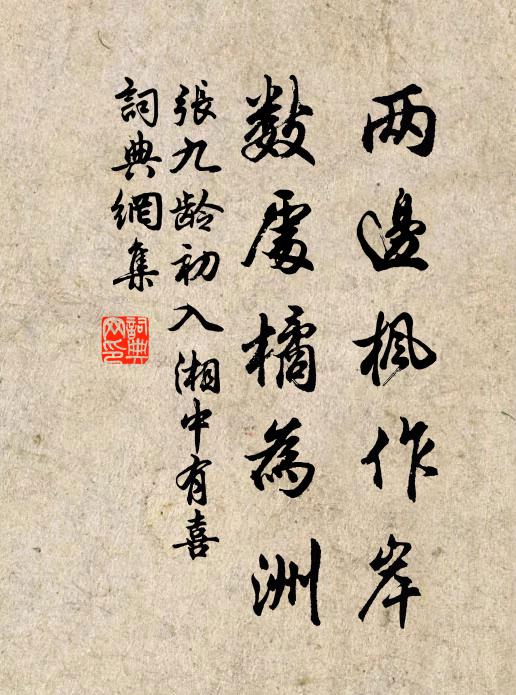 两邊楓作岸
數處橘為洲
張九齡初入湘中有喜
詞典網集
詞典网印